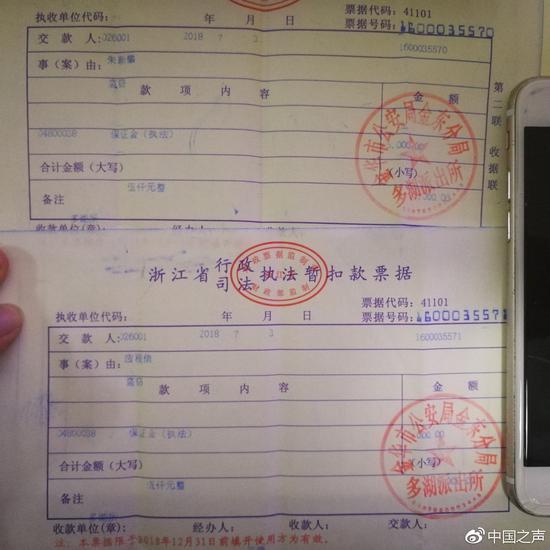 执收单位代码: 年 月 日 票据代码: 41101
票据号码: 1600035570
交款人: 026001 2018 7 3 1600035570
事（案）由:
款项内容 金额
04800038 保证金（执法） 000.00
合计金额（大写） （小写） 000.00
伍仟元整
备注
收款单位(章): 经办人: 收款人:
第二联 收据联
金华市公安局金东分局
多湖派出所
浙江省行政司法执法暂扣款票据
执收单位代码: 年 月 日 票据代码: 41101
票据号码: 1600035571
交款人: 026001 2018 7 3 1600035571
事（案）由:
款项内容 金额
04800038 保证金（执法） 000.00
合计金额（大写） （小写）
伍仟元整
备注
收款单位(章): 经办人: 收款人: 交款人:
注: 本票据限于2018年12月31日前填开使用方为有效。
金华市公安局金东分局
多湖派出所
@中国之声